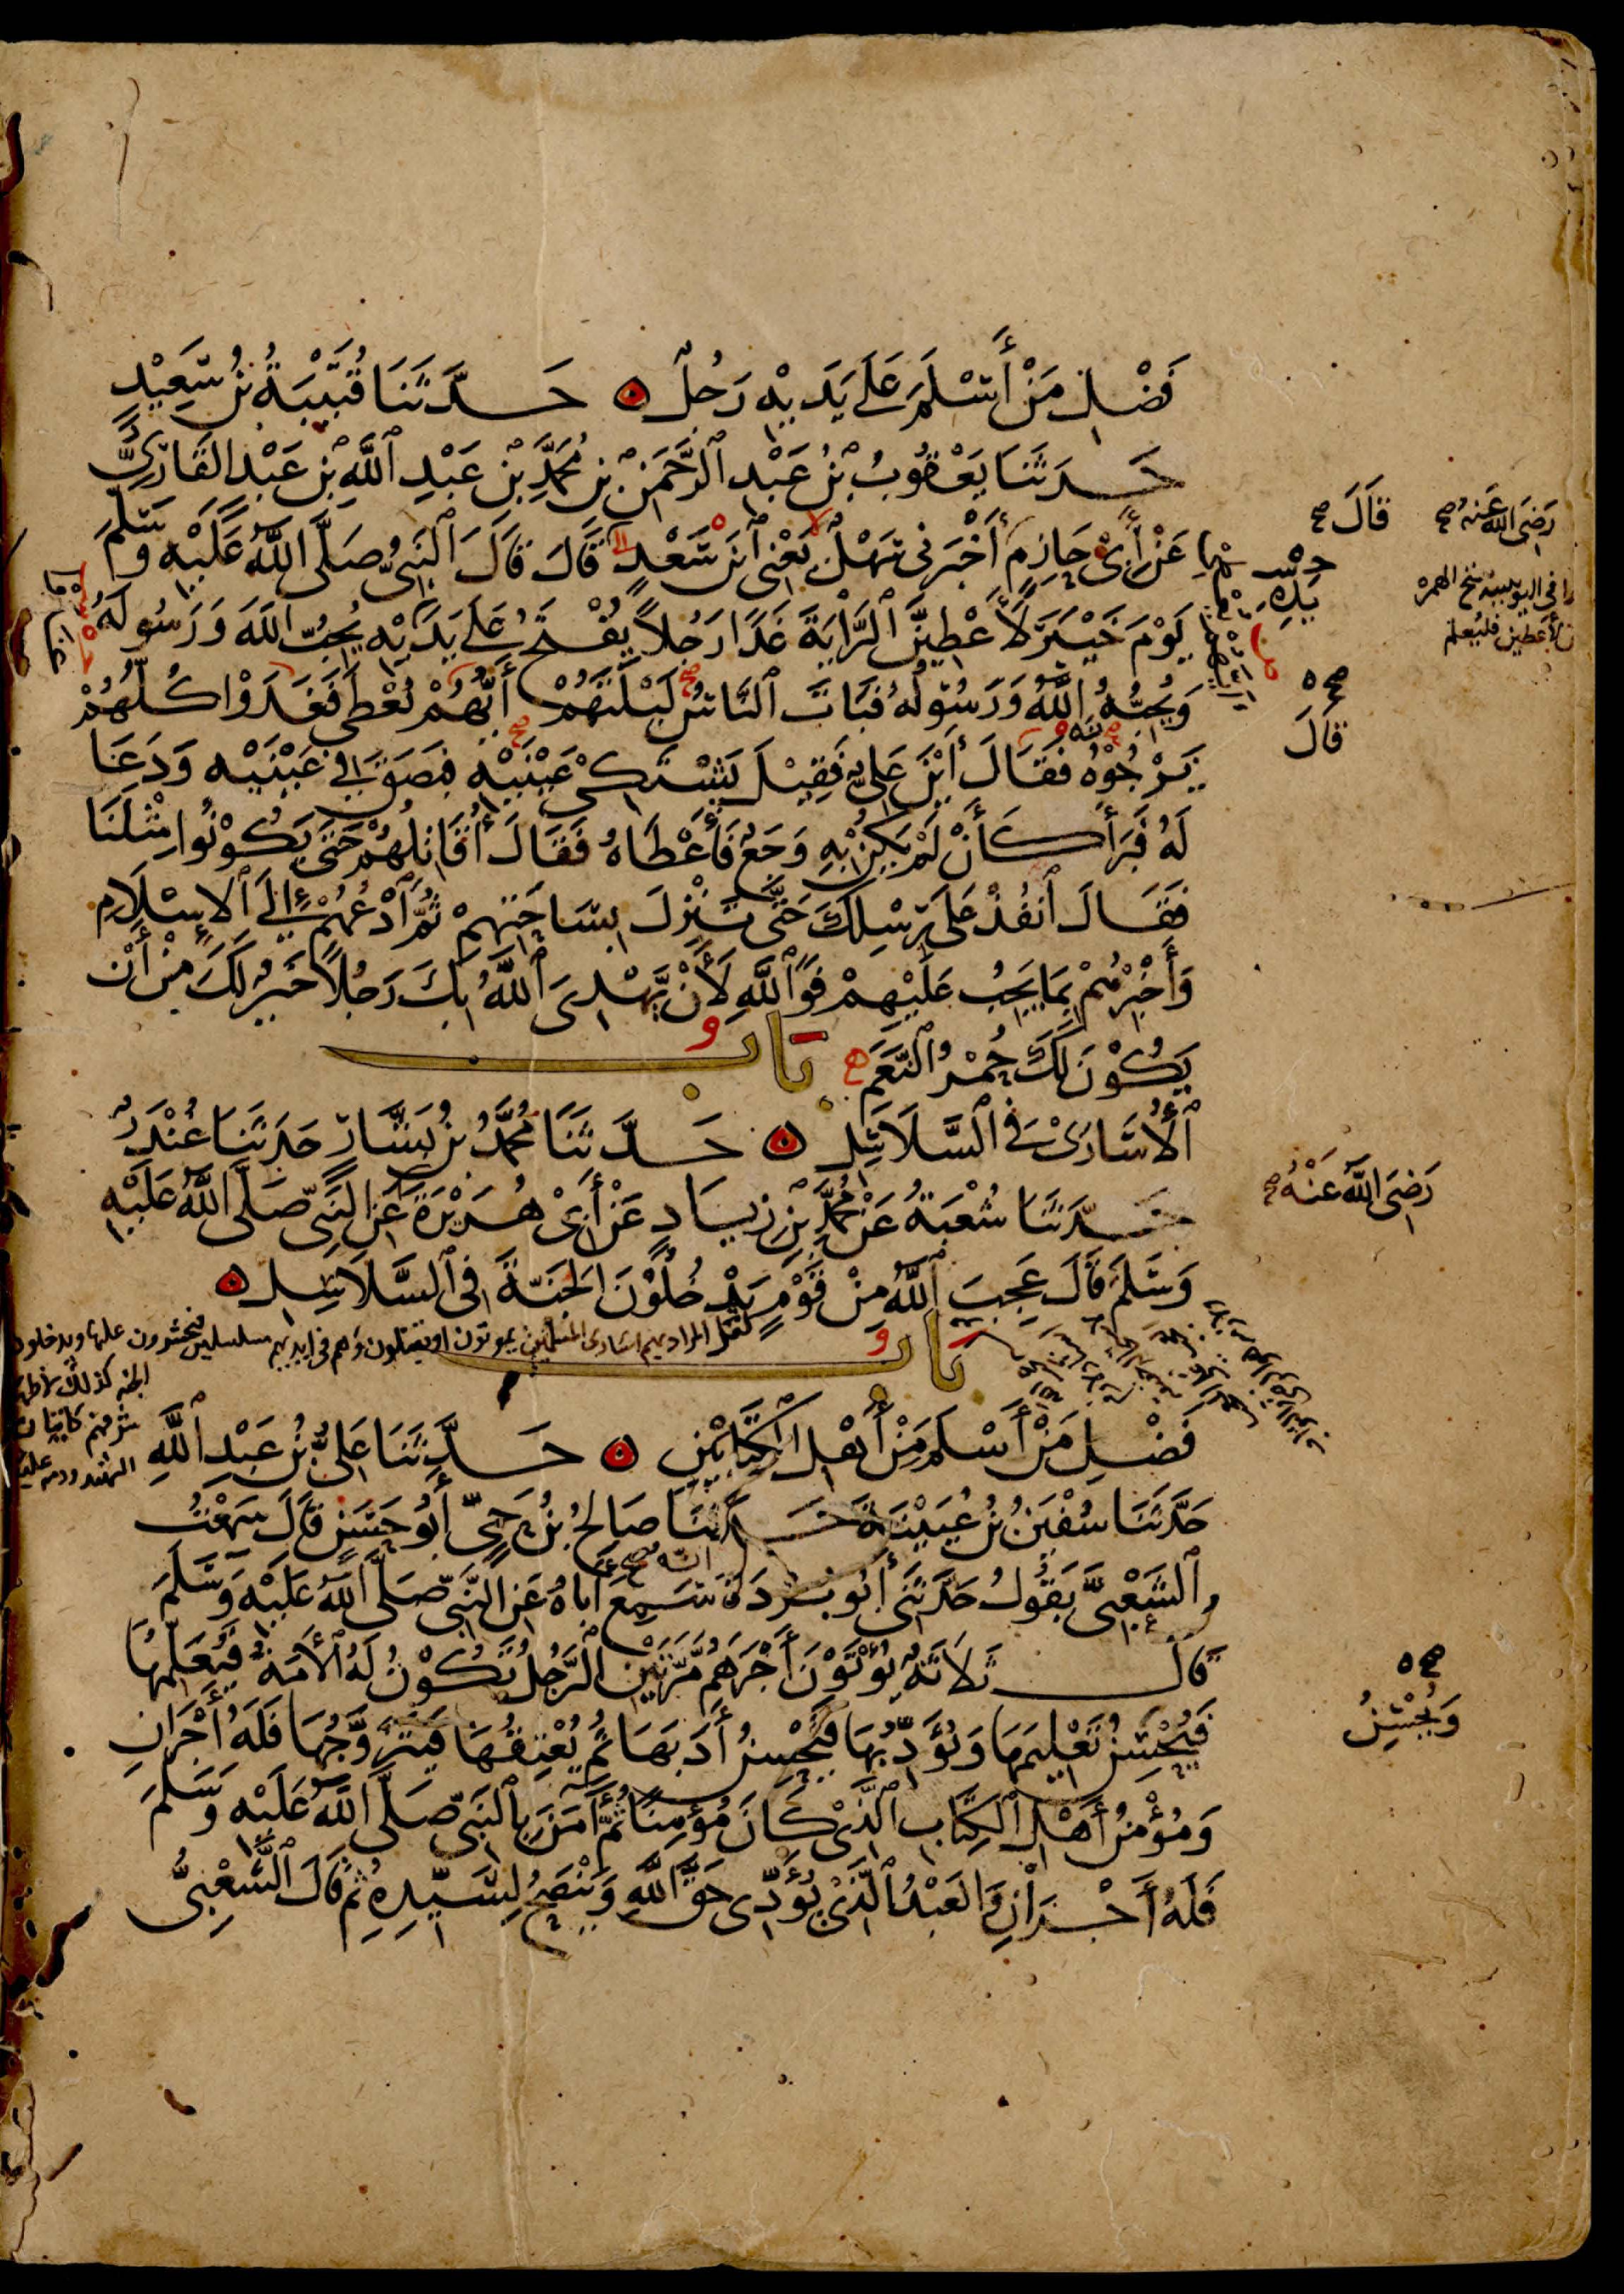 فَضْلِ مَنْ أَسْلَمَ عَلَى يَدَيْهِ رَجُلٌ حَدَّثَنَا قُتَيْبَةُ بْنُ سَعِيْدٍ
حَدَّثَنَا يَعْقُوبُ بْنُ عَبْدِ الرَّحْمَنِ بْنِ مُحَمَّدِ بْنِ عَبْدِ اللَّهِ بْنِ عَبْدٍ القَارِيُّ
عَنْ أَبِيْ حَازِمٍ أَخْبَرَنِى سَهْلٌ يَعْنِى ابْنَ سَعْدٍ قَالَ قَالَ النَّبِيُّ صَلَّى اللَّهُ عَلَيْهِ وَسَلَّمَ
يَوْمَ خَيْبَرَ لَأُعْطِيَنَّ الرَّايَةَ غَدًا رَجُلاً يُفْتَحُ عَلَى يَدَيْهِ يُحِبُّ اللَّهَ وَرَسُولَهُ
وَيُحِبُّهُ اللَّهُ وَرَسُولُهُ فَبَاتَ النَّاسُ لَيْلَتَهُمْ أَيُّهُمْ يُعْطَى فَغَدَوْا كُلُّهُمْ
يَرْجُوْهُ فَقَالَ أَيْنَ عَلِيٌّ فَقِيْلَ يَشْتَكِيْ عَيْنَيْهِ فَبَصَقَ فِي عَيْنَيْهِ وَدَعَا
لَهُ فَبَرَأَ كَأَنْ لَمْ يَكُنْ بِهِ وَجَعٌ فَأَعْطَاهُ فَقَالَ أُقَاتِلُهُمْ حَتَّى يَكُوْنُوا مِثْلَنَا
فَقَالَ انْفُذْ عَلَى رِسْلِكَ حَتَّى تَنْزِلَ بِسَاحَتِهِمْ ثُمَّ ادْعُهُمْ إِلَى الإِسْلَامِ
وَأَخْبِرْهُمْ بِمَا يَجِبُ عَلَيْهِمْ فَوَاللَّهِ لَأَنْ يَهْدِىَ اللَّهُ بِكَ رَجُلاً خَيْرٌ لَكَ مِنْ أَنْ
يَكُوْنَ لَكَ حُمْرُ النَّعَمِ بَابُ
الأُسَارَىْ فِي السَّلَاسِلِ حَدَّثَنَا مُحَمَّدُ بْنُ بَشَّارٍ حَدَّثَنَا غُنْدَرٌ
حَدَّثَنَا شُعْبَةُ عَنْ مُحَمَّدِ بْنِ زِيَادٍ عَنْ أَبِيْ هُرَيْرَةَ عَنِ النَّبِيِّ صَلَّى اللَّهُ عَلَيْهِ
وَسَلَّمَ قَالَ عَجِبَ اللَّهُ مِنْ قَوْمٍ يَدْخُلُوْنَ الجَنَّةَ فِي السَّلَاسِلِ
بَابُ
فَضْلِ مَنْ أَسْلَمَ مِنْ أَهْلِ الْكِتَابَيْنِ حَدَّثَنَا عَلِيُّ بْنُ عَبْدِ اللَّهِ
حَدَّثَنَا سُفْيَنُ بْنُ عُيَيْنَةَ حَدَّثَنَا صَالِحُ بْنُ حَيٍّ أَبُو حَسَنٍ قَالَ سَمِعْتُ
الشَّعْبِيَّ يَقُولُ حَدَّثَنِي أَبُو بُرْدَةَ أَنَّهُ سَمِعَ أَبَاهُ عَنِ النَّبِيِّ صَلَّى اللَّهُ عَلَيْهِ وَسَلَّمَ
قَالَ ثَلَاثَةٌ يُؤْتَوْنَ أَجْرَهُمْ مَرَّتَيْنِ الرَّجُلُ تَكُوْنُ لَهُ الأَمَةُ فَيُعَلِّمُهَا
فَيُحْسِنُ تَعْلِيمَهَا وَيُؤَدِّبُهَا فَيُحْسِنُ أَدَبَهَا ثُمَّ يُعْتِقُهَا فَيَتَزَوَّجُهَا فَلَهُ أَجْرَانِ
وَمُؤْمِنُ أَهْلِ الْكِتَابِ الَّذِيْ كَانَ مُؤْمِنًا ثُمَّ آمَنَ بِالنَّبِيِّ صَلَّى اللَّهُ عَلَيْهِ وَسَلَّمَ
فَلَهُ أَجْرَانِ وَالعَبْدُ الَّذِيْ يُؤَدِّى حَقَّ اللَّهِ وَيَنْصَحُ لِسَيِّدِهِ ثُمَّ قَالَ الشَّعْبِيُّ
رَضِيَ اللَّهُ عَنْهُ صح
قَالَ صح
يَدِهِ
صح
قَالَ
رَضِيَ اللَّهُ عَنْهُ صح
صح
وَيُحْسِنُ
لعل المراد بهم اسارى المسلمين يموتون او يقتلون وهم فى ايديهم مسلسلين فيحشرون عليها ويدخلون
الجنة كذلك